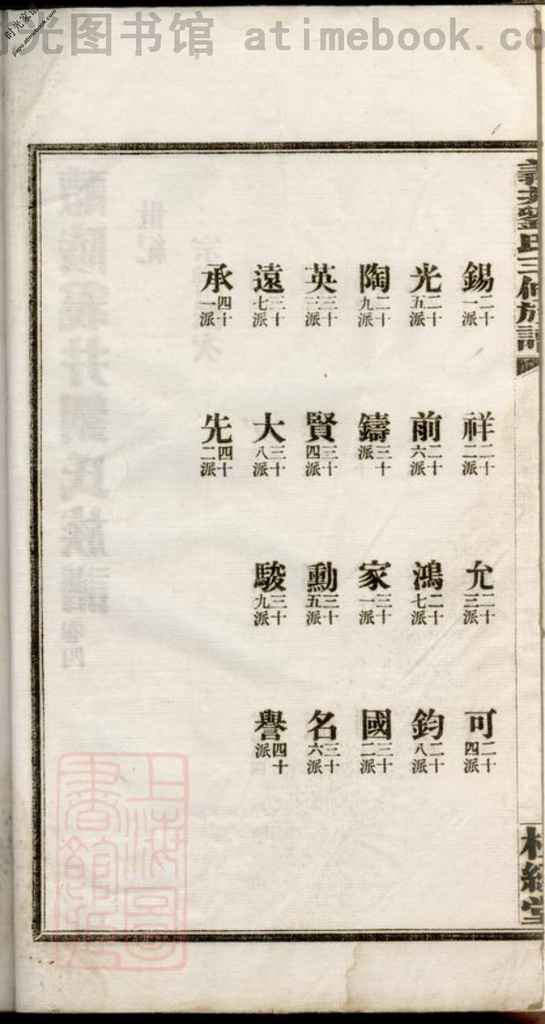 光图书馆 atimebook.co
義井劉氏三修族譜
錫 二十一派
祥 二十二派
允 二十三派
可 二十四派
光 二十五派
前 二十六派
鴻 二十七派
鈞 二十八派
陶 二十九派
鑄 三十派
家 三十一派
國 三十二派
英 三十三派
賢 三十四派
勳 三十五派
名 三十六派
遠 三十七派
大 三十八派
駿 三十九派
譽 四十派
承 四十一派
先 四十二派
醴陵義井劉氏族譜 卷四
世紀
上海圖書館藏